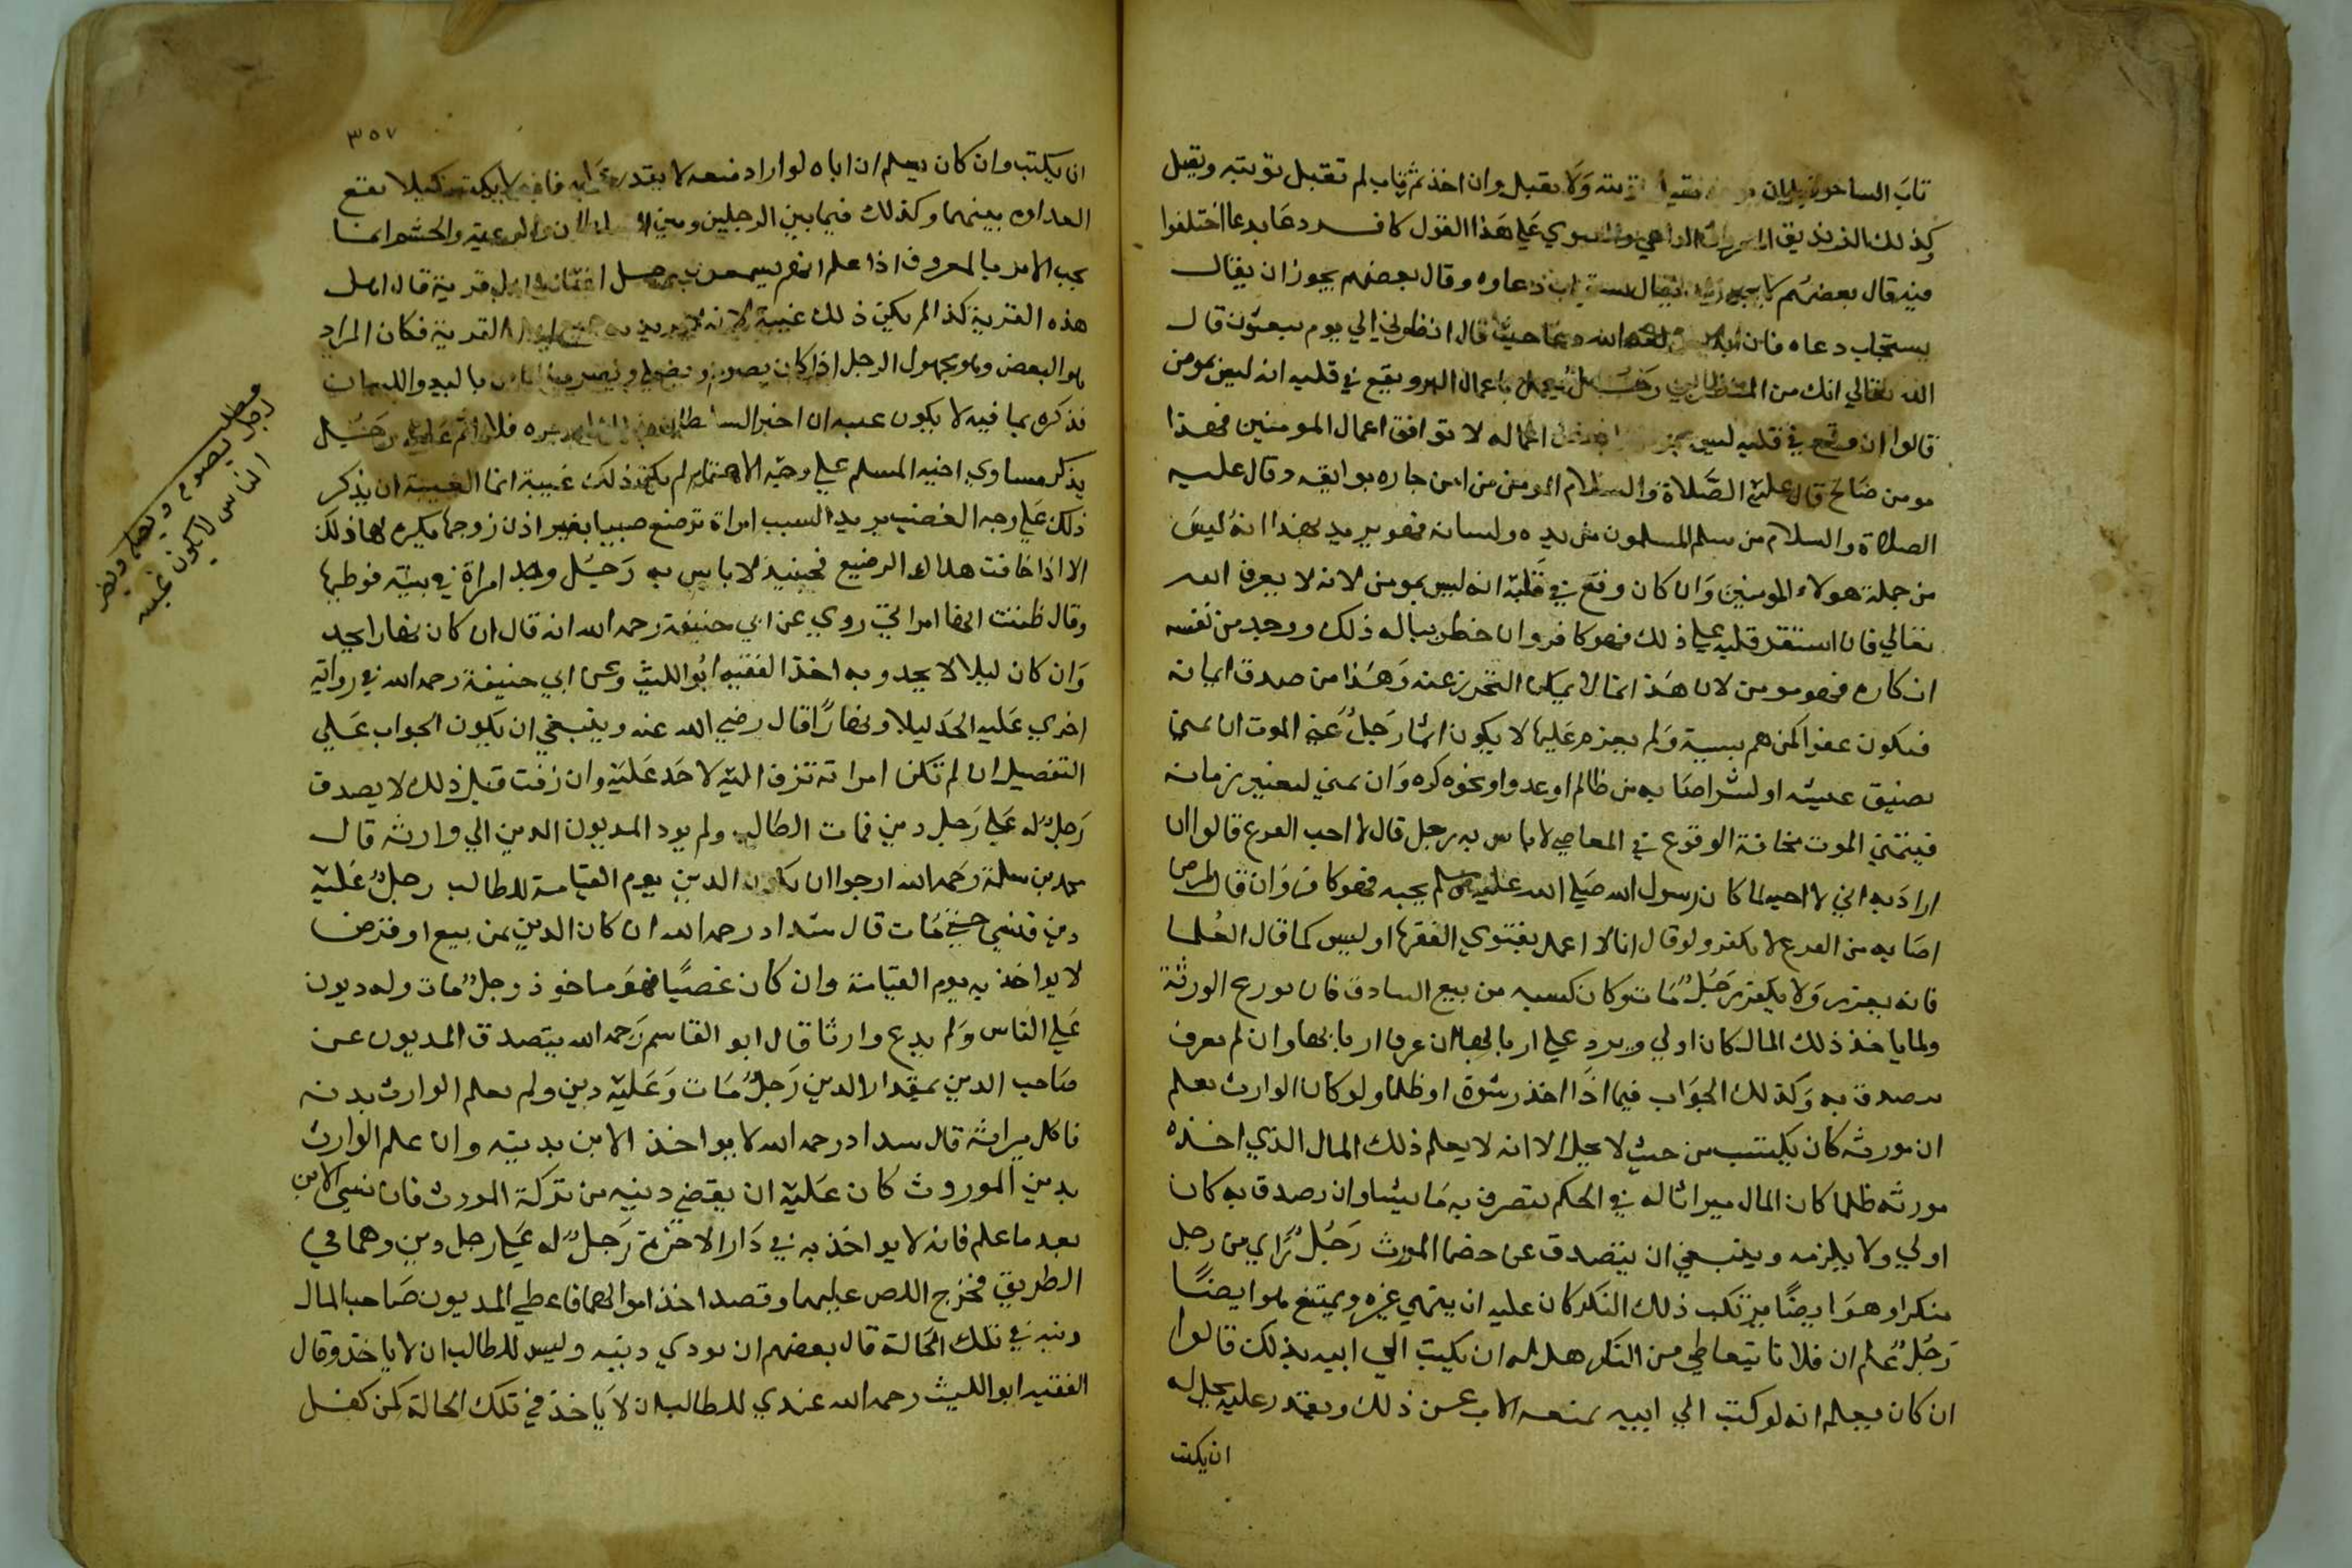 تاب الساحر قبل ان يوخذ تقبل توبته ولا يقبل وان اخذ ثم تاب لم تقبل توبته ويقبل
وكذلك الزنديق المعروف الداعي والفتوي علي هذا القول كافر دعا بدعا اختلفوا
فيه قال بعضهم لا يجوز ان يقال يستجاب دعاوه وقال بعضهم يجوز ان يقال
يستجاب دعاه فان ابليس لعنه الله دعا حيث قال انظرني الي يوم يبعثون قال
الله تعالي انك من المنظرين رجل يعمل باعمال البر ويقع في قلبه انه ليس بمومن
قالوا ان وقع في قلبه ليس بمومن اعماله لا توافق اعمال المومنين فهذا
مومن صالح قال عليه الصلاة والسلام المومن من امن جاره بوايقه وقال عليه
الصلاة والسلام من سلم المسلمون من يده ولسانه فهو يريد بهذا انه ليس
من جملة هولاء المومنين وان كان وقع في قلبه انه ليس بمومن لانه لا يعرف الله
تعالي فان استقر قلبه علي ذلك فهو كافر وان خطر بباله ذلك ووجد من نفسه
انكاره فهو مومن لان هذا مما لا يمكن التحرز عنه وهذا من صدق ايمانه
فيكون عفوا كمن هم بسية ولم يعزم عليها لا يكون اثما رجل تمني الموت ان تمني
لضيق عيشه او لشر اصابه من ظالم او عدو او نحوه كره وان تمني لتغيير زمانه
فيتمني الموت مخافة الوقوع في المعاصي لا باس به رجل قال لا احب القرع قالوا ان
اراد به اني لا احبه لما كان رسول الله صلي الله عليه وسلم يحبه فهو كافر وان قال لمرض
اصابه من القرع لا يكفر ولو قال انا لا اعمل بفتوي الفقها او ليس كما قال العلما
فانه يعزر ولا يكفر رجل مات وكان كسبه من بيع البادق فان تورع الورثة
ولما ياخذ ذلك المال كان اولي ويرد علي اربابها ان عرف اربابها وان لم يعرف
يتصدق به وكذلك الجواب فيما اذا اخذ رشوة او ظلما ولو كان الوارث يعلم
ان مورثه كان يكتسب من حيث لا يحل الا انه لا يعلم ذلك المال الذي اخذه
مورثه ظلما كان المال ميراثا له في الحكم يتصرف به ما يشا وان تصدق به كان
اولي ولا يلزمه وينبغي ان يتصدق عن خصما المورث رجل راي من رجل
منكرا وهو ايضا يرتكب ذلك المنكر كان عليه ان ينهي غيره ويمتنع هو ايضا
رجل علم ان فلانا يتعاطي من المنكر هل له ان يكتب الي ابيه بذلك قالوا
ان كان يعلم انه لو كتب الي ابيه يمنعه الاب عن ذلك ويقدر عليه يحل له
ان يكتب
٣٥٧
ان يكتب وان كان يعلم ان اباه لو اراد منعه لا يقدر عليه فانه لا يكتب كيلا تقع
العداوه بينهما وكذلك فيما بين الرجلين وبين السلطان والرعية والحشم انما
يجب الامر بالمعروف اذا علم انهم يسمعون رجل اغتاب اهل قرية قال اهل
هذه القرية كذا لم يكن ذلك غيبة لانه لا يريد به جميع اهل القرية فكان المراد
هو البعض وهو مجهول الرجل اذا كان يصوم ويصلي ويضر الناس باليد واللسان
فذكره بما فيه لا يكون غيبة ان اخبر السلطان بذلك ليزجره فلا اثم عليه رجل
يذكر مساوي اخيه المسلم علي وجه الاهتمام لم يكن ذلك غيبة انما الغيبة ان يذكر
ذلك علي وجه الغضب يريد السبب امراة ترضع صبيا بغير اذن زوجها يكره لها ذلك
الا اذا خافت هلاك الرضيع فحينيذ لا باس به رجل وجد امراة في بيته فوطيها
وقال ظننت انها امراتي روي عن ابي حنيفة رحمه الله انه قال ان كان نهارا يحد
وان كان ليلا لا يحد وبه اخذ الفقيه ابو الليث وعن ابي حنيفة رحمه الله في رواية
اخري عليه الحد ليلا ونهارا قال رضي الله عنه وينبغي ان يكون الجواب علي
التفصيل ان لم تكن امراته تزف اليه لا حد عليه وان زفت قبل ذلك لا يصدق
رجل له علي رجل دين فمات الطالب ولم يود المديون الدين الي وارثه قال
محمد بن سلمة رحمه الله ارجوا ان يكون الدين يوم القيامة للطالب رجل عليه
دين فنسي حتي مات قال شداد رحمه الله ان كان الدين ثمن بيع او قرضا
لا يواخذ به يوم القيامة وان كان غصبا فهو ماخوذ رجل مات وله ديون
علي الناس ولم يدع وارثا قال ابو القاسم رحمه الله يتصدق المديون عن
صاحب الدين بمقدار الدين رجل مات وعليه دين ولم يعلم الوارث بدينه
فاكل ميراثه قال شداد رحمه الله لا يواخذ الابن بدينه وان علم الوارث
بدين الموروث كان عليه ان يقضي دينه من تركة المورث فان نسي الابن
بعد ما علم فانه لا يواخذ به في دار الاخرة رجل له علي رجل دين وهما في
الطريق فخرج اللص عليهما وقصد اخذ اموالهما فاعطي المديون صاحب المال
دينه في تلك الحالة قال بعضهم ان يودي دينه وليس للطالب ان لا ياخذ وقال
الفقيه ابو الليث رحمه الله عندي للطالب ان لا ياخذ في تلك الحالة كمن كفل
مطلب
رجل يصوم ويصلي ويضر
الناس لا يكون غيبه